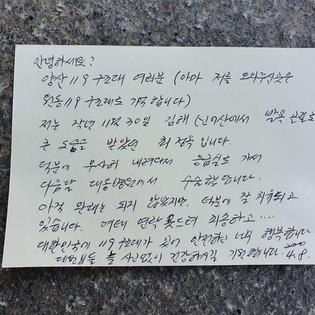 안녕하세요?
양산119구조대 여러분 (아마 저를 도와주신분은
원동119구조대로 기억합니다)
저는 작년 11월 30일 김해 (신어산에서 발목 골절로
큰 도움을 받았던 최 입니다.
덕분에 무사히 내려와서 응급실로 가서
다음날 대동병원에서 수술했습니다.
아직 완쾌는 되지 않았지만, 덕분에 잘 치유되고
있습니다. 여태 연락 못드려 죄송하고....
대한민국에 119구조대가 있어 안전하고 너무 행복합니다
대원님들 늘 사고없이 건강하시길 기원합니다. 4.8.